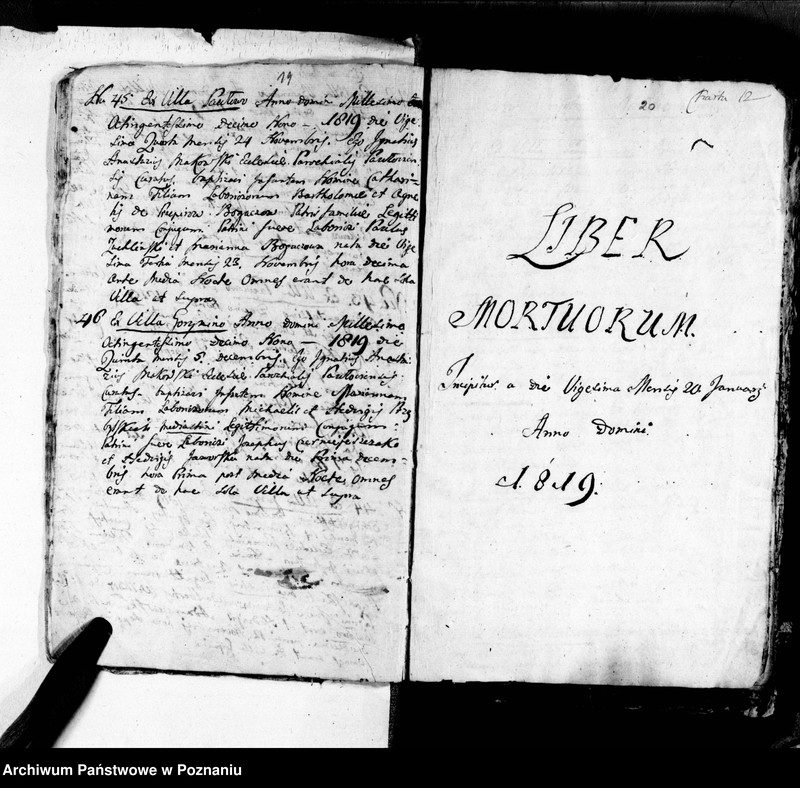 19
45 Ex Villa Pawłowo Anno Domini Millesimo
Octingentesimo Decimo Nono – 1819 die Vige-
sima Quarta Mensis 24 Novembris. Ego Ignatius
Anastazius Makowski Ecclesiae Parochialis
Curatus baptizavi Infantem Nomine Cathari-
nam Filiam Laboriosorum Bartholomei et Agne-
tis de Bogaczow Patris Familiae Legitti-
morum Conjugum. Patrini fuere Laboriosi Paulus
et Marianna Bogaczowa nata die Vige-
sima Tertia Mensis 23. Novembris hora decima
Ante Media Nocte Omnes erant de hac
Villa ut Supra
46 Ex Villa Gorzmino Anno Domini Millesimo
Octingentesimo Decimo Nono – 1819 die
Quinta Mensis 5. Decembris. Ego Ignatius Anasta-
zius Makowski Ecclesiae Parochialis
Curatus baptizavi Infantem Nomine Mariannam
Filiam Laboriosorum Michaelis et Hedvigis
Legittimorum Conjugum:
Patrini fuere Laboriosi Josephus
et Hedvigis Jaworska nata die Prima Decem-
bris hora Prima post Media Nocte, Omnes
erant de hac Villa ut Supra
20
Charta 12
LIBER
MORTUORUM.
Incipitur a die Vigesima Mensis 20 January
Anno Domini
1819.
Archiwum Państwowe w Poznaniu